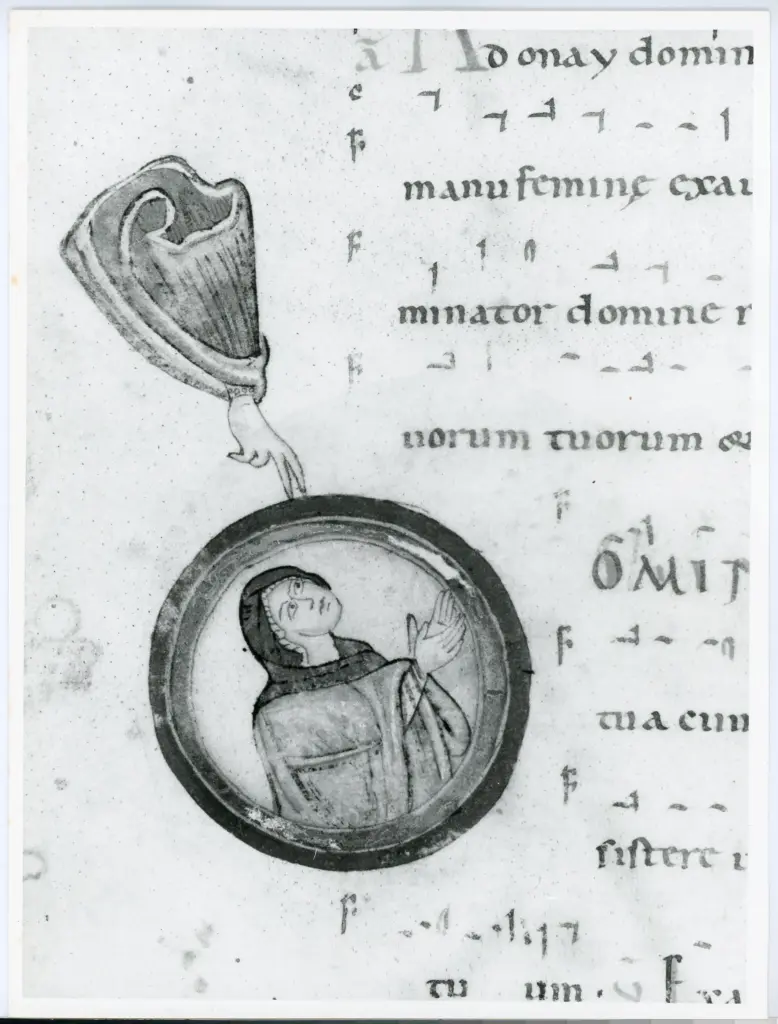 Adonay domin
manu feminę exau
minator domine r
uorum tuorum &
OMIT
tua cum
sistere
tu um. Exa